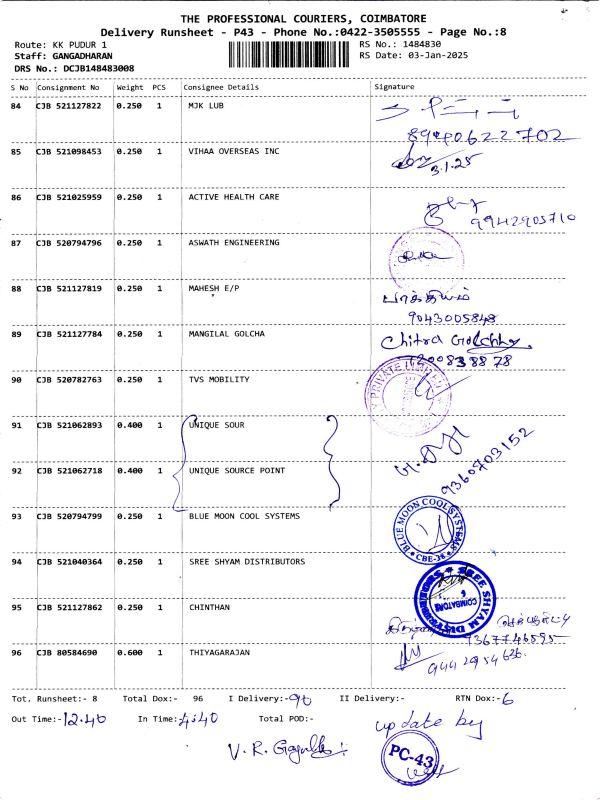 THE PROFESSIONAL COURIERS, COIMBATORE
Delivery Runsheet - P43 - Phone No.:0422-3505555 - Page No.:8
Route: KK PUDUR 1 RS No.: 1484830
Staff: GANGADHARAN RS Date: 03-Jan-2025
DRS No.: DCJB148483008
S No Consignment No Weight PCS Consignee Details Signature
84 CJB 521127822 0.250 1 MJK LUB
8940622702
85 CJB 521098453 0.250 1 VIHAA OVERSEAS INC
3.1.25
86 CJB 521025959 0.250 1 ACTIVE HEALTH CARE
9942903710
87 CJB 520794796 0.250 1 ASWATH ENGINEERING
88 CJB 521127819 0.250 1 MAHESH E/P
பாக்கியம்
9043005848
89 CJB 521127784 0.250 1 MANGILAL GOLCHA Chitra Golchha.
90 CJB 520782763 0.250 1 TVS MOBILITY PRIVATE LIMITED
91 CJB 521062893 0.400 1 UNIQUE SOUR
92 CJB 521062718 0.400 1 UNIQUE SOURCE POINT 9360703152
93 CJB 520794799 0.250 1 BLUE MOON COOL SYSTEMS BLUE MOON COOL SYSTEMS
CBE-38
94 CJB 521040364 0.250 1 SREE SHYAM DISTRIBUTORS SREE SHYAM DISTRIBUTORS
COIMBATORE
95 CJB 521127862 0.250 1 CHINTHAN
9367746595
96 CJB 80584690 0.600 1 THIYAGARAJAN
Tot. Runsheet:- 8 Total Dox:- 96 I Delivery:- 90 II Delivery:- RTN Dox:- 6
Out Time:- 12.40 In Time:- 4:40 Total POD:- update by
PC-43